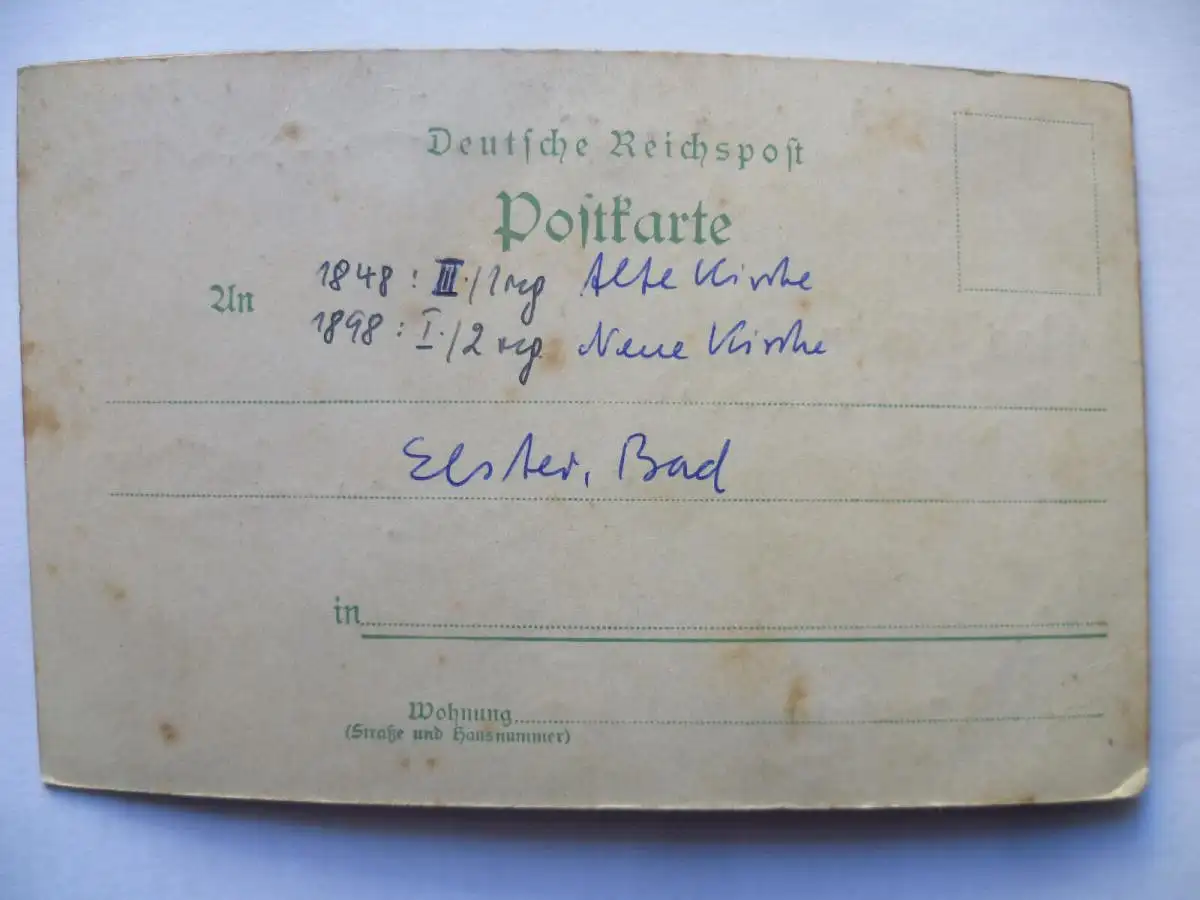 Deutsche Reichspost
Postkarte
An
1848 : III./1 reg Alte Kirche
1898 : I./2 reg. Neue Kirche
Elster, Bad
in
Wohnung
(Straße und Hausnummer)